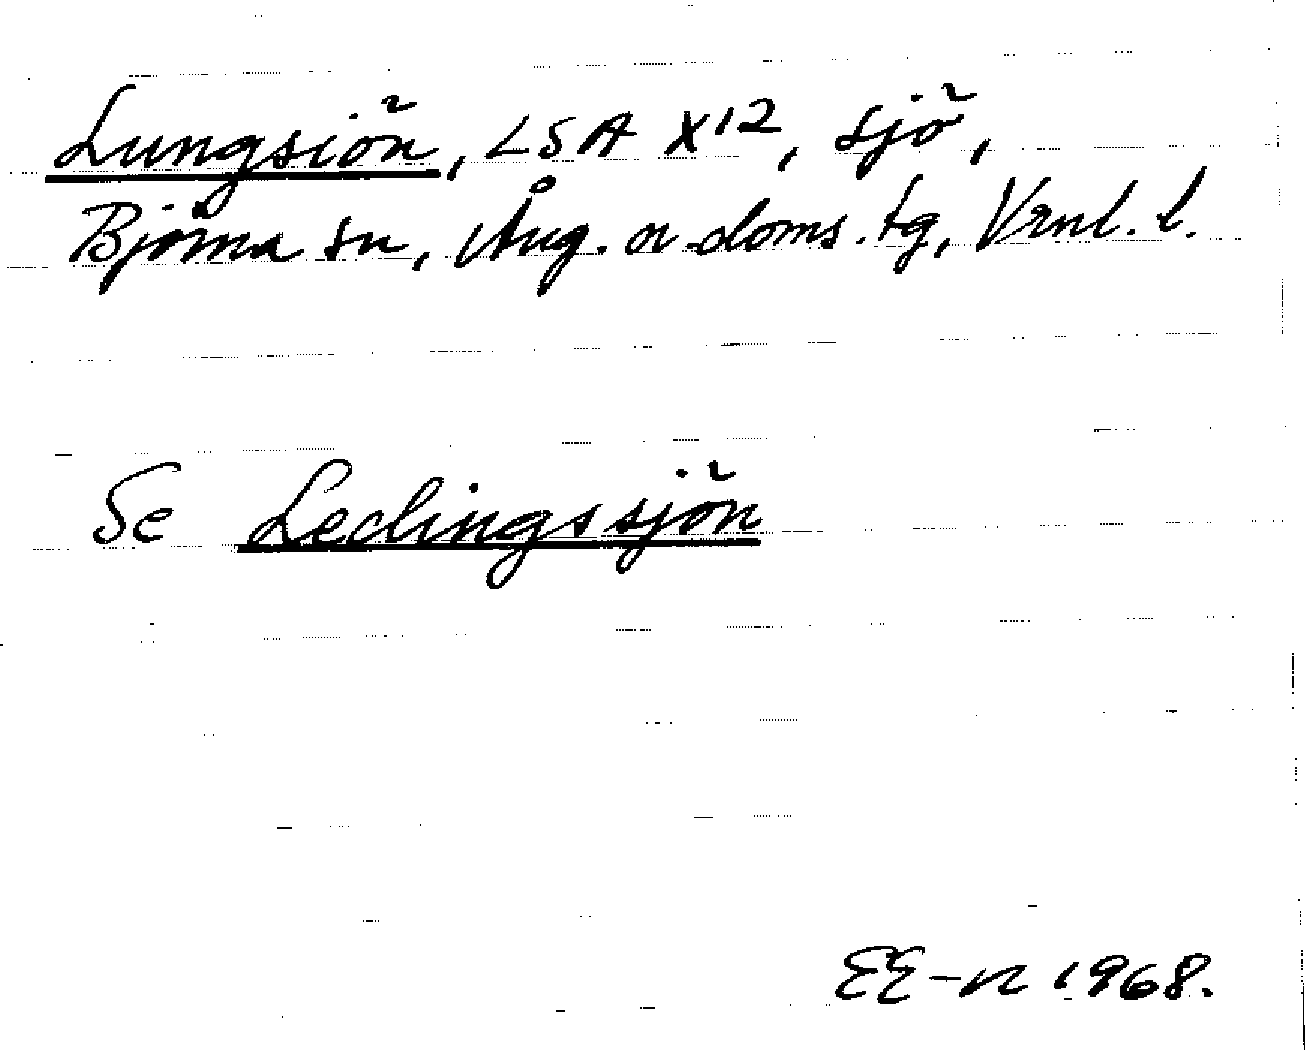 Lungsiön, LSA X12, sjö,
Björna sn, Ång. n doms. tg, Vrnl. l.
Se Ledingssjön
EE-n 1968.